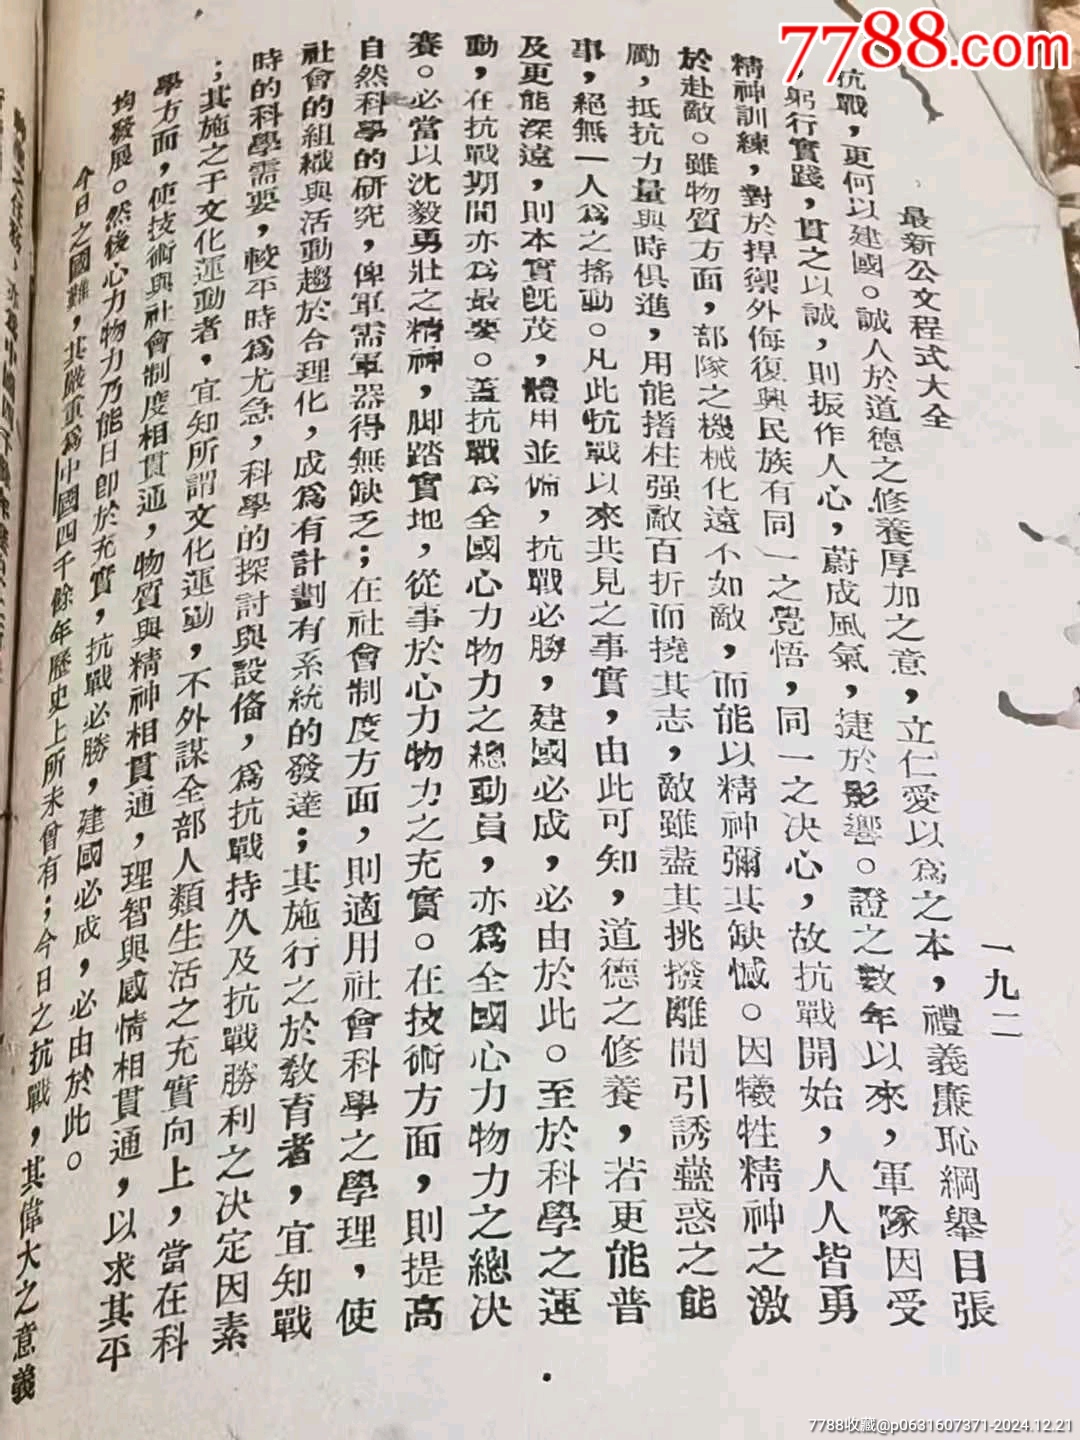 7788.com
最新公文程式大全
一九二
抗戰，更何以建國。誠人於道德之修養厚加之意，立仁愛以爲之本，禮義廉恥綱舉目張
，躬行實踐，貫之以誠，則振作人心，蔚成風氣，捷於影響。證之數年以來，軍隊因受
精神訓練，對於捍禦外侮復興民族有同一之覺悟，同一之决心，故抗戰開始，人人皆勇
於赴敵。雖物質方面，部隊之機械化遠不如敵，而能以精神彌其缺憾。因犧牲精神之激
勵，抵抗力量與時俱進，用能撐柱强敵百折而撓其志，敵雖盡其挑撥離間引誘蠱惑之能
事，絕無一人爲之搖動。凡此抗戰以來共見之事實，由此可知，道德之修養，若更能普
及更能深遠，則本實旣茂，體用並備，抗戰必勝，建國必成，必由於此。至於科學之運
動，在抗戰期間亦爲最要。蓋抗戰爲全國心力物力之總動員，亦爲全國心力物力之總決
賽。必當以沈毅勇壯之精神，脚踏實地，從事於心力物力之充實。在技術方面，則提高
自然科學的研究，俾軍需軍器得無缺乏；在社會制度方面，則適用社會科學之學理，使
社會的組織與活動趨於合理化，成爲有計劃有系統的發達；其施行之於敎育者，宜知戰
時的科學需要，較平時爲尤急，科學的探討與設備，爲抗戰持久及抗戰勝利之决定因素
；其施之于文化運動者，宜知所謂文化運動，不外謀全部人類生活之充實向上，當在科
學方面，使技術與社會制度相貫通，物質與精神相貫通，理智與感情相貫通，以求其平
均發展。然後心力物力乃能日卽於充實，抗戰必勝，建國必成，必由於此。
今日之國難，其嚴重爲中國四千餘年歷史上所未曾有；今日之抗戰，其偉大之意義
7788收藏@p0631607371-2024.12.21